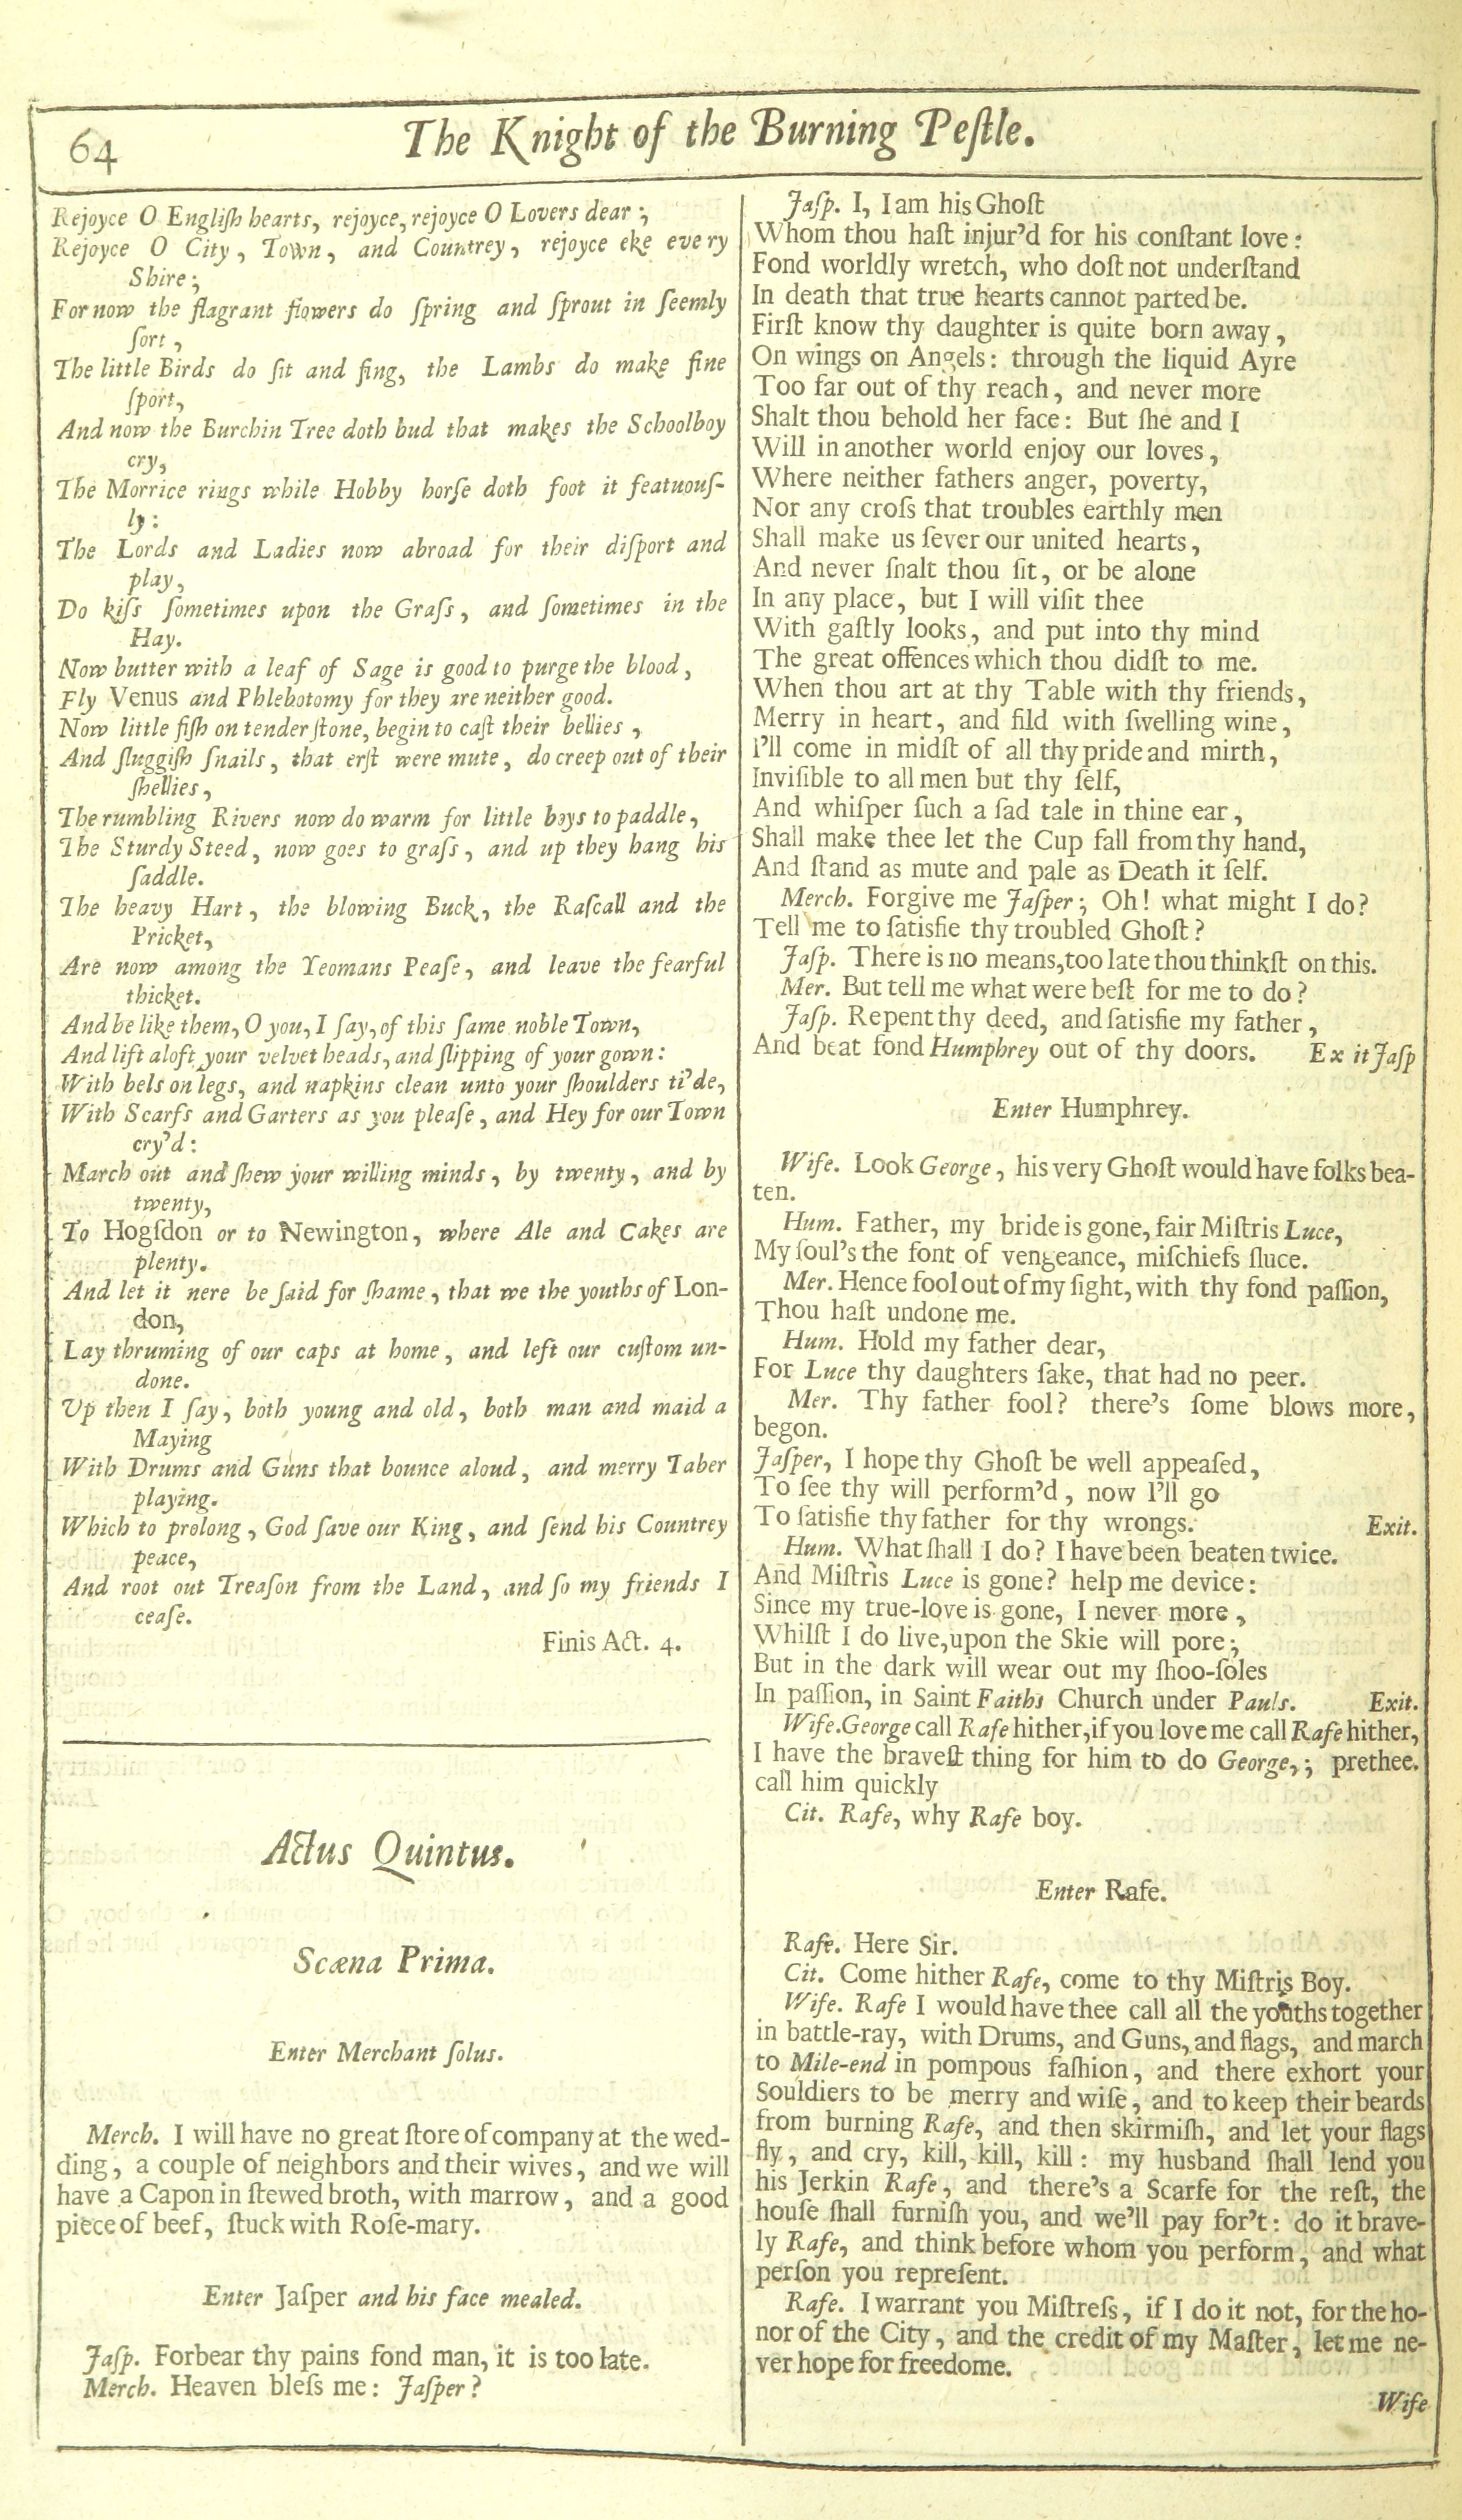 64
The Knight of the Burning Peſtle.
Rejoyce O Engliſh hearts, rejoyce, rejoyce O Lovers dear;
Rejoyce O City, Town, and Countrey, rejoyce eke every
Shire;
For now the flagrant flowers do ſpring and ſprout in ſeemly
ſort,
The little Birds do ſit and ſing, the Lambs do make fine
ſport,
And now the Burchin Tree doth bud that makes the Schoolboy
cry,
The Morrice rings while Hobby horſe doth foot it featuouſ-
ly:
The Lords and Ladies now abroad for their diſport and
play,
Do kiſs ſometimes upon the Graſs, and ſometimes in the
Hay.
Now butter with a leaf of Sage is good to purge the blood,
Fly Venus and Phlebotomy for they are neither good.
Now little fiſh on tender ſtone, begin to caſt their bellies,
And ſluggiſh ſnails, that erſt were mute, do creep out of their
ſhellies,
The rumbling Rivers now do warm for little boys to paddle,
The Sturdy Steed, now goes to graſs, and up they hang his
ſaddle.
The heavy Hart, the blowing Buck, the Raſcall and the
Pricket,
Are now among the Yeomans Peaſe, and leave the fearful
thicket.
And be like them, O you, I ſay, of this ſame noble Town,
And lift aloft your velvet heads, and ſlipping of your gown:
With bels on legs, and napkins clean unto your ſhoulders ti'de,
With Scarfs and Garters as you pleaſe, and Hey for our Town
cry'd:
March out and ſhew your willing minds, by twenty, and by
twenty,
To Hogſdon or to Newington, where Ale and Cakes are
plenty.
And let it nere be ſaid for ſhame, that we the youths of Lon-
don,
Lay thruming of our caps at home, and left our cuſtom un-
done.
Up then I ſay, both young and old, both man and maid a
Maying
With Drums and Guns that bounce aloud, and merry Taber
playing.
Which to prolong, God ſave our King, and ſend his Countrey
peace,
And root out Treaſon from the Land, and ſo my friends I
ceaſe.
Finis Act. 4.
Actus Quintus.
Scæna Prima.
Enter Merchant ſolus.
Merch. I will have no great ſtore of company at the wed-
ding, a couple of neighbors and their wives, and we will
have a Capon in ſtewed broth, with marrow, and a good
piece of beef, ſtuck with Roſe-mary.
Enter Jaſper and his face mealed.
Jaſp. Forbear thy pains fond man, it is too late.
Merch. Heaven bleſs me: Jaſper?
Jaſp. I, I am his Ghoſt
Whom thou haſt injur'd for his conſtant love:
Fond worldly wretch, who doſt not underſtand
In death that true hearts cannot parted be.
Firſt know thy daughter is quite born away,
On wings on Angels: through the liquid Ayre
Too far out of thy reach, and never more
Shalt thou behold her face: But ſhe and I
Will in another world enjoy our loves,
Where neither fathers anger, poverty,
Nor any croſs that troubles earthly men
Shall make us ſever our united hearts,
And never ſhalt thou ſit, or be alone
In any place, but I will viſit thee
With gaſtly looks, and put into thy mind
The great offences which thou didſt to me.
When thou art at thy Table with thy friends,
Merry in heart, and fild with ſwelling wine,
I'll come in midſt of all thy pride and mirth,
Inviſible to all men but thy ſelf,
And whiſper ſuch a ſad tale in thine ear,
Shall make thee let the Cup fall from thy hand,
And ſtand as mute and pale as Death it ſelf.
Merch. Forgive me Jaſper; Oh! what might I do?
Tell me to ſatisfie thy troubled Ghoſt?
Jaſp. There is no means, too late thou thinkſt on this.
Mer. But tell me what were beſt for me to do?
Jaſp. Repent thy deed, and ſatisfie my father,
And beat fond Humphrey out of thy doors. Ex it Jaſp
Enter Humphrey.
Wife. Look George, his very Ghoſt would have folks bea-
ten.
Hum. Father, my bride is gone, fair Miſtris Luce,
My ſoul's the font of vengeance, miſchiefs ſluce.
Mer. Hence fool out of my ſight, with thy fond paſſion,
Thou haſt undone me.
Hum. Hold my father dear,
For Luce thy daughters ſake, that had no peer.
Mer. Thy father fool? there's ſome blows more,
begon.
Jaſper, I hope thy Ghoſt be well appeaſed,
To ſee thy will perform'd, now I'll go
To ſatisfie thy father for thy wrongs. Exit.
Hum. What ſhall I do? I have been beaten twice.
And Miſtris Luce is gone? help me device:
Since my true-love is gone, I never more,
Whilſt I do live, upon the Skie will pore;
But in the dark will wear out my ſhoo-ſoles
In paſſion, in Saint Faiths Church under Pauls. Exit.
Wife. George call Rafe hither, if you love me call Rafe hither,
I have the braveſt thing for him to do George,; prethee.
call him quickly
Cit. Rafe, why Rafe boy.
Enter Rafe.
Rafe. Here Sir.
Cit. Come hither Rafe, come to thy Miſtris Boy.
Wife. Rafe I would have thee call all the youths together
in battle-ray, with Drums, and Guns, and flags, and march
to Mile-end in pompous faſhion, and there exhort your
Souldiers to be merry and wiſe, and to keep their beards
from burning Rafe, and then skirmiſh, and let your flags
fly, and cry, kill, kill, kill: my husband ſhall lend you
his Jerkin Rafe, and there's a Scarfe for the reſt, the
houſe ſhall furniſh you, and we'll pay for't: do it brave-
ly Rafe, and think before whom you perform, and what
perſon you repreſent.
Rafe. I warrant you Miſtreſs, if I do it not, for the ho-
nor of the City, and the credit of my Maſter, let me ne-
ver hope for freedome.
Wife